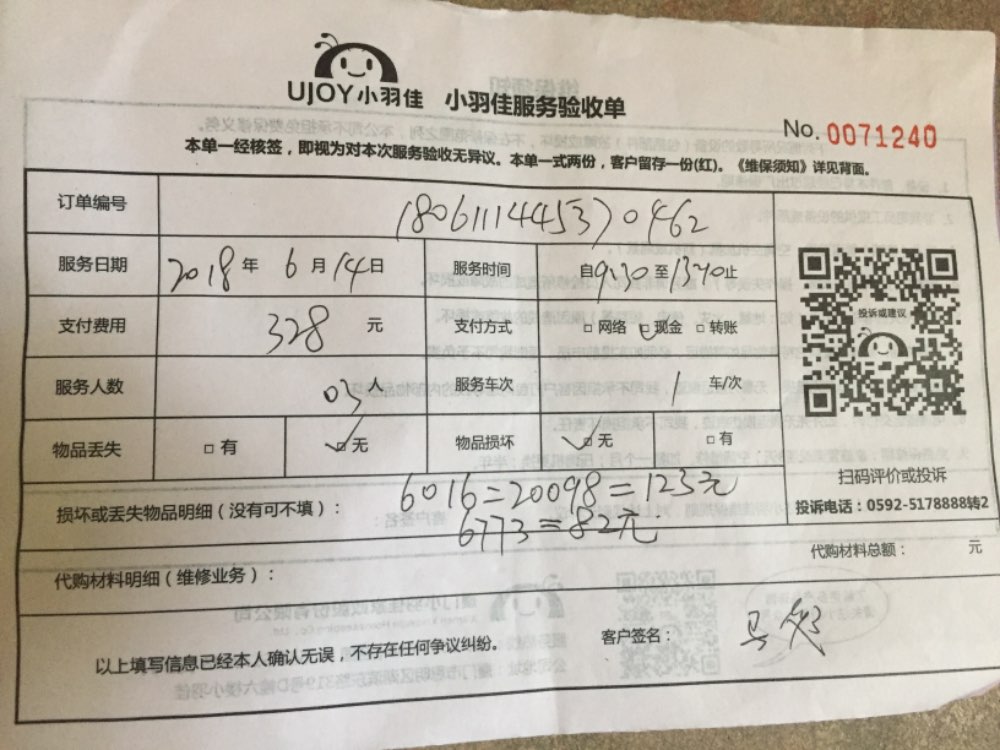 UJOY小羽佳 小羽佳服务验收单
No. 0071240
本单一经核签，即视为对本次服务验收无异议。本单一式两份，客户留存一份(红)。《维保须知》详见背面。
订单编号 1806111445370462
服务日期 2018年6月14日 服务时间 自9:30至13:40止
支付费用 328 元 支付方式 □网络 ☑现金 □转账
服务人数 03人 服务车次 1 车/次
物品丢失 □有 ☑无 物品损坏 ☑无 □有
投诉或建议
扫码评价或投诉
投诉电话：0592-5178888转2
损坏或丢失物品明细（没有可不填）：
6016=20098=123元
6773=82元
代购材料明细（维修业务）： 代购材料总额： 元
以上填写信息已经本人确认无误，不存在任何争议纠纷。 客户签名：